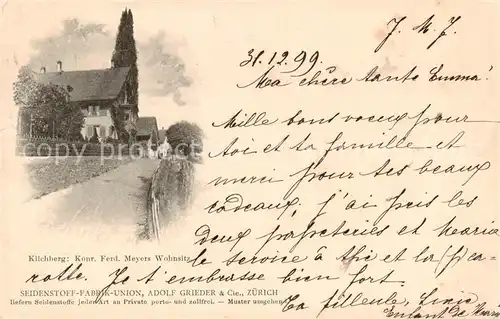 J. M. J.
31.12.99
Ma chère tante Emma!
Mille bons voeux pour
toi et ta famille et
merci pour tes beaux
cadeaux, j'ai pris les
deux et
le service à thé et la
rotte. Je t'embrasse bien fort
Ta filleule,
Enfant de
Kilchberg: Konr. Ferd. Meyers Wohnsitz
SEIDENSTOFF-FABRIK-UNION, ADOLF GRIEDER & Cie., ZÜRICH
liefern Seidenstoffe jeder Art an Private porto- und zollfrei. — Muster umgehend